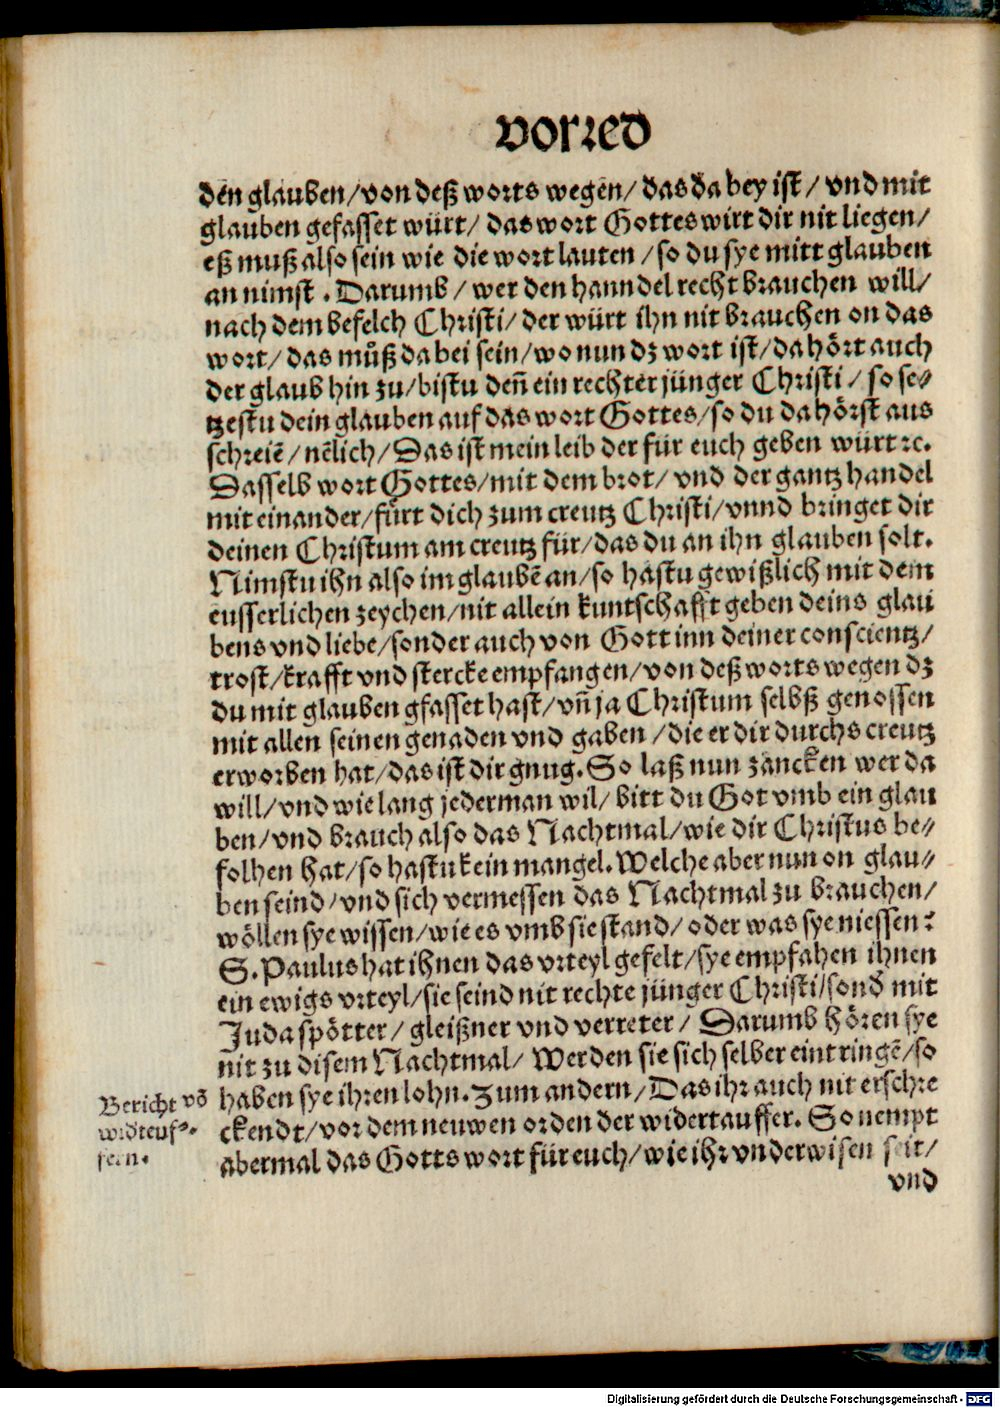 vorred
den glauben/von deß worts wegen/ das da bey ist/ vnd mit
glauben gefasset würt/ das wort Gottes wirt dir nit liegen/
eß muß also sein wie die wort lauten/so du sye mitt glauben
an nimst . Darumb/ wer den hanndel recht brauchen will/
nach dem befelch Christi/ der würt ihn nit brauchen on das
wort/ das můß da bei sein/wo nun dz wort ist/da hört auch
der glaub hin zu/bistu deñ ein rechter jünger Christi/ so se⸗
tzestu dein glauben auf das wort Gottes/so du da hörst aus
schreiẽ/nẽlich/Das ist mein leib der für euch geben würt ꝛc.
Dasselb wort Gottes/mit dem brot/ vnd der gantz handel
mit einander/fůrt dich zum creutz Christi/vnnd bringet dir
deinen Christum am creutz für/das du an ihn glauben solt.
Nimstu ihn also im glaubẽ an/so hastu gewißlich mit dem
eusserlichen zeychen/nit allein kuntschafft geben deins glau
bens vnd liebe/sonder auch von Gott inn deiner conscientz/
trost/krafft vnd stercke empfangen/von deß worts wegen dz
du mit glauben gfasset hast/vñ ja Christum selbß genossen
mit allen seinen genaden vnd gaben/die er dir durchs creutz
erworben hat/das ist dir gnug. So laß nun zancken wer da
will/vnd wie lang jederman wil/ bitt du Got vmb ein glau
ben/vnd brauch also das Nachtmal/wie dir Christus be⸗
folhen hat/so hastu kein mangel. Welche aber nun on glau⸗
ben seind/vnd sich vermessen das Nachtmal zu brauchen/
wöllen sye wissen/wie es vmb sie stand/oder was sye niessen?
S. Paulus hat ihnen das vrteyl gefelt/sye empfahen ihnen
ein ewigs vrteyl/sie seind nit rechte jünger Christi/sond' mit
Juda spötter/ gleißner vnd verreter/ Darumb hören sye
nit zu disem Nachtmal/ Werden sie sich selber eintringẽ/so
haben sye ihren lohn. Zum andern/Das ihr auch nit erschre
ckendt/vor dem neuwen orden der widertauffer. So nempt
abermal das Gotts wort für euch/wie ihr vnderwisen seit/
vnd
Bericht võ
widteuf⸗
fern.
Digitalisierung gefördert durch die Deutsche Forschungsgemeinschaft - DFG